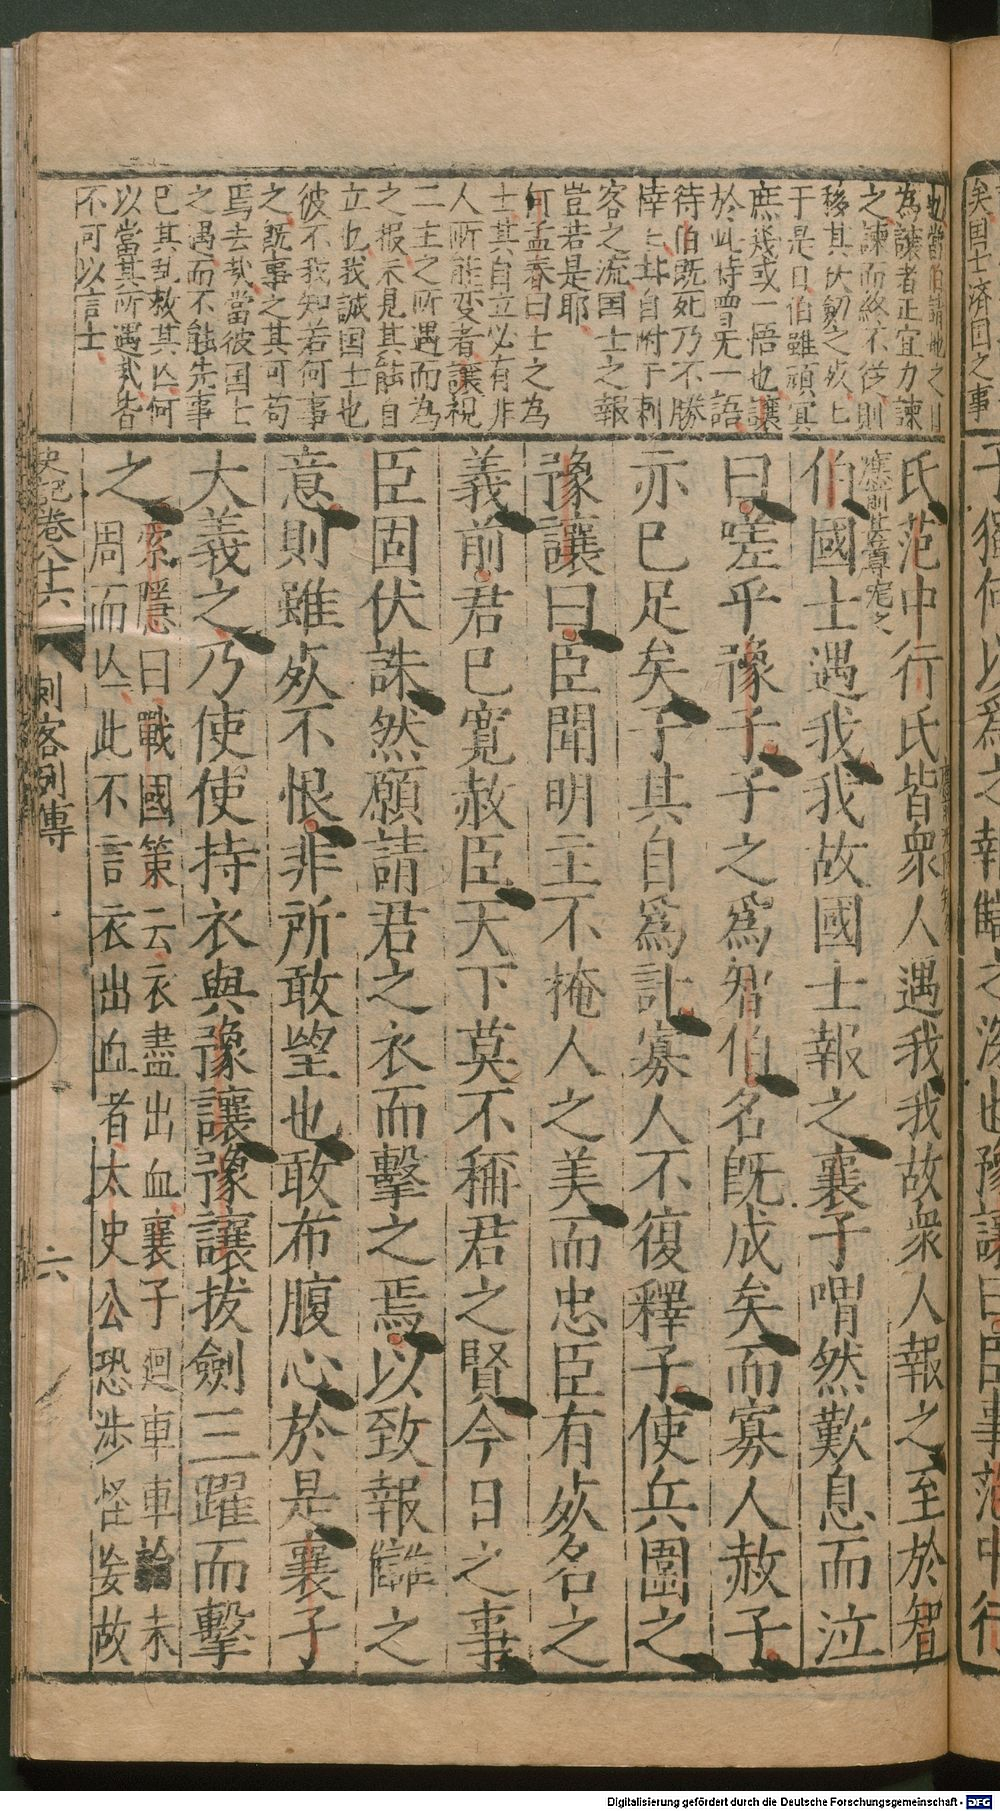 矣国士済国之事
子獨何以為之報讎之深也豫讓曰臣事范中行
也當伯請地之日
為讓者正宜力諫
之諫而終不従則
移其伏劔之死上
于是日伯雖頑冥
庶幾或一悟也讓
於此時曽无一語
待伯既死乃不勝
悻悻自附于刺
客之流国士之報
豈若是耶
何孟春曰士之為
士其自立必有非
人所能变者讓視
二主之所遇而為
之报示見其能自
立也我誠国士也
彼不我知若何事
之既事之其可苟
焉去我當彼国士
之遇而不能先事
已其乱救其亾何
以當其所遇哉皆
不可以言士
氏范中行氏皆衆人遇我我故衆人報之至於智
伯國士遇我我故國士報之襄子喟然歎息而泣
曰嗟乎豫子子之爲智伯名旣成矣而寡人赦子
亦已足矣子其自爲計寡人不復釋子使兵圍之
豫讓曰臣聞明主不掩人之美而忠臣有死名之
義前君已寬赦臣天下莫不稱君之賢今日之事
臣固伏誅然願請君之衣而擊之焉以致報讎之
意則雖死不恨非所敢望也敢布腹心於是襄子
大義之乃使使持衣與豫讓豫讓拔劍三躍而擊
之
索隱曰戰國策云衣盡出血襄子迴車車輪未
周而亾此不言衣出血者太史公恐涉怪妄故
史記卷八十六
刺客列傳
六
Digitalisierung gefördert durch die Deutsche Forschungsgemeinschaft - DFG